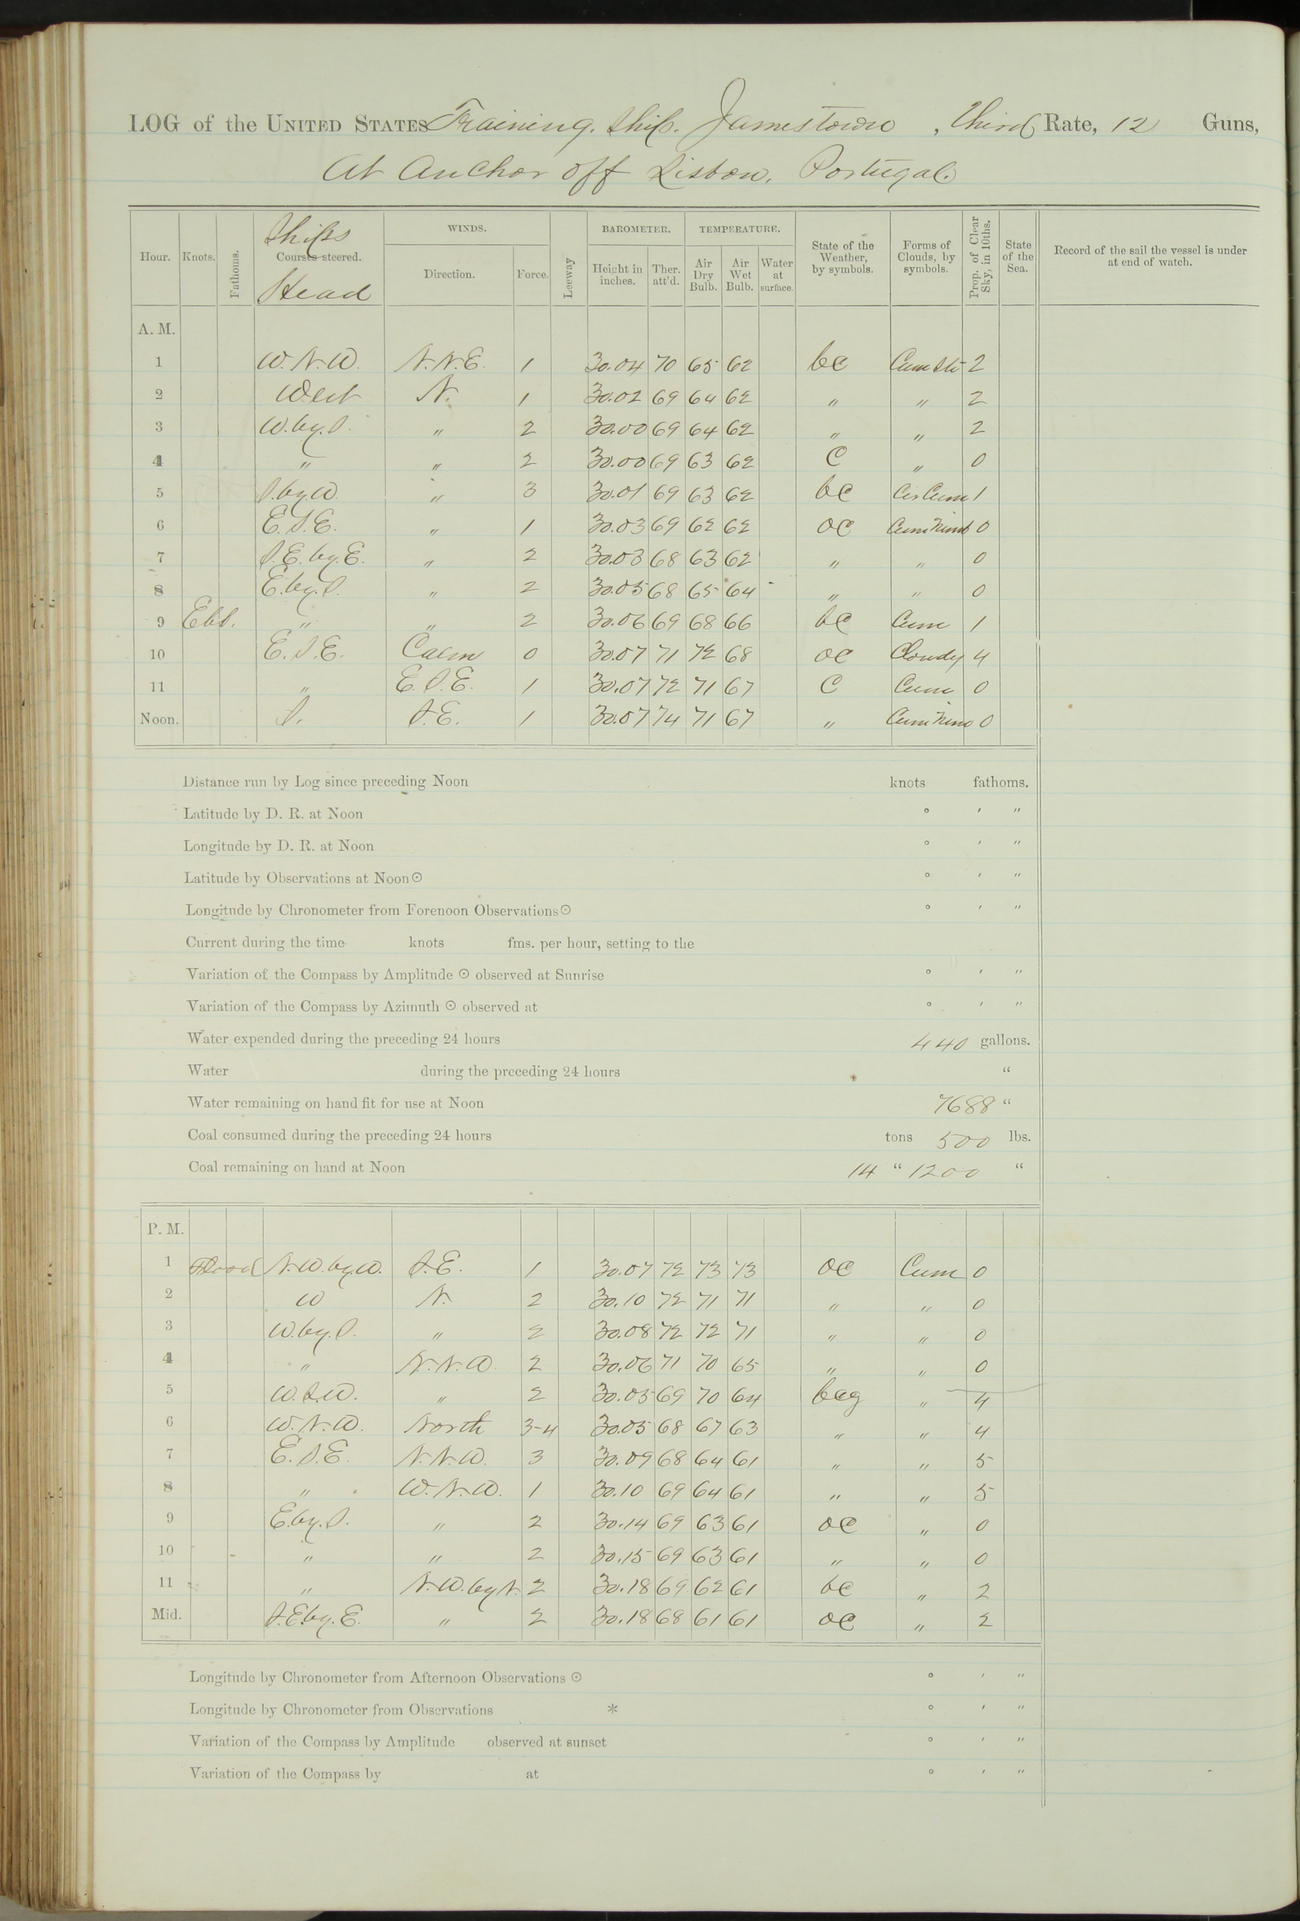 LOG of the UNITED STATES Training Ship Jamestown, Third Rate, 12 Guns,
At Anchor off Lisbon, Portugal.
Hour. Knots. Fathoms. Ships Courses steered. Head WINDS. Direction. Force. Leeway BAROMETER. Height in inches. Ther. att'd. TEMPERATURE. Air Dry Bulb. Air Wet Bulb. Water at surface. State of the Weather, by symbols. Forms of Clouds, by symbols. Prop. of Clear Sky, in 10ths. State of the Sea. Record of the sail the vessel is under at end of watch.
A. M.
1 W.N.W. N.N.E. 1 30.04 70 65 62 bc Cum Str 2
2 West N. 1 30.02 69 64 62 " " 2
3 W.by.S. " 2 30.00 69 64 62 " " 2
4 " " 2 30.00 69 63 62 C " 0
5 S.by W. " 3 30.01 69 63 62 bc Cir Cum 1
6 E.S.E. " 1 30.03 69 62 62 oc Cum Nimb 0
7 S.E. by. E. " 2 30.03 68 63 62 " " 0
8 E.by.S. " 2 30.05 68 65 64 " " 0
9 Ebb. " " 2 30.06 69 68 66 bc Cum 1
10 E.S.E. Calm 0 30.07 71 72 68 oc Cloudy 4
11 " E.S.E. 1 30.07 72 71 67 C Cum 0
Noon. S. S.E. 1 30.07 74 71 67 " Cum Nim 0
Distance run by Log since preceding Noon knots fathoms.
Latitude by D. R. at Noon ° ′ ″
Longitude by D. R. at Noon ° ′ ″
Latitude by Observations at Noon ☉ ° ′ ″
Longitude by Chronometer from Forenoon Observations ☉ ° ′ ″
Current during the time knots fms. per hour, setting to the
Variation of the Compass by Amplitude ☉ observed at Sunrise ° ′ ″
Variation of the Compass by Azimuth ☉ observed at ° ′ ″
Water expended during the preceding 24 hours 440 gallons.
Water during the preceding 24 hours "
Water remaining on hand fit for use at Noon 7688 "
Coal consumed during the preceding 24 hours tons 500 lbs.
Coal remaining on hand at Noon 14 " 1200 "
P. M.
1 Flood N.W. by W. S.E. 1 30.07 72 73 73 oc Cum 0
2 W N. 2 30.10 72 71 71 " " 0
3 W.by.S. " 2 30.08 72 72 71 " " 0
4 " N.N.W. 2 30.06 71 70 65 " " 0
5 W.S.W. " 2 30.05 69 70 64 bcg " 4
6 W.N.W. North 3-4 30.05 68 67 63 " " 4
7 E.S.E. N.N.W. 3 30.09 68 64 61 " " 5
8 " W.N.W. 1 30.10 69 64 61 " " 5
9 E.by.S. " 2 30.14 69 63 61 oc " 0
10 " " 2 30.15 69 63 61 " " 0
11 " N.W. by N. 2 30.18 69 62 61 bc " 2
Mid. S.E.by.E. " 2 30.18 68 61 61 oc " 2
Longitude by Chronometer from Afternoon Observations ☉ ° ′ ″
Longitude by Chronometer from Observations * ° ′ ″
Variation of the Compass by Amplitude observed at sunset ° ′ ″
Variation of the Compass by at ° ′ ″